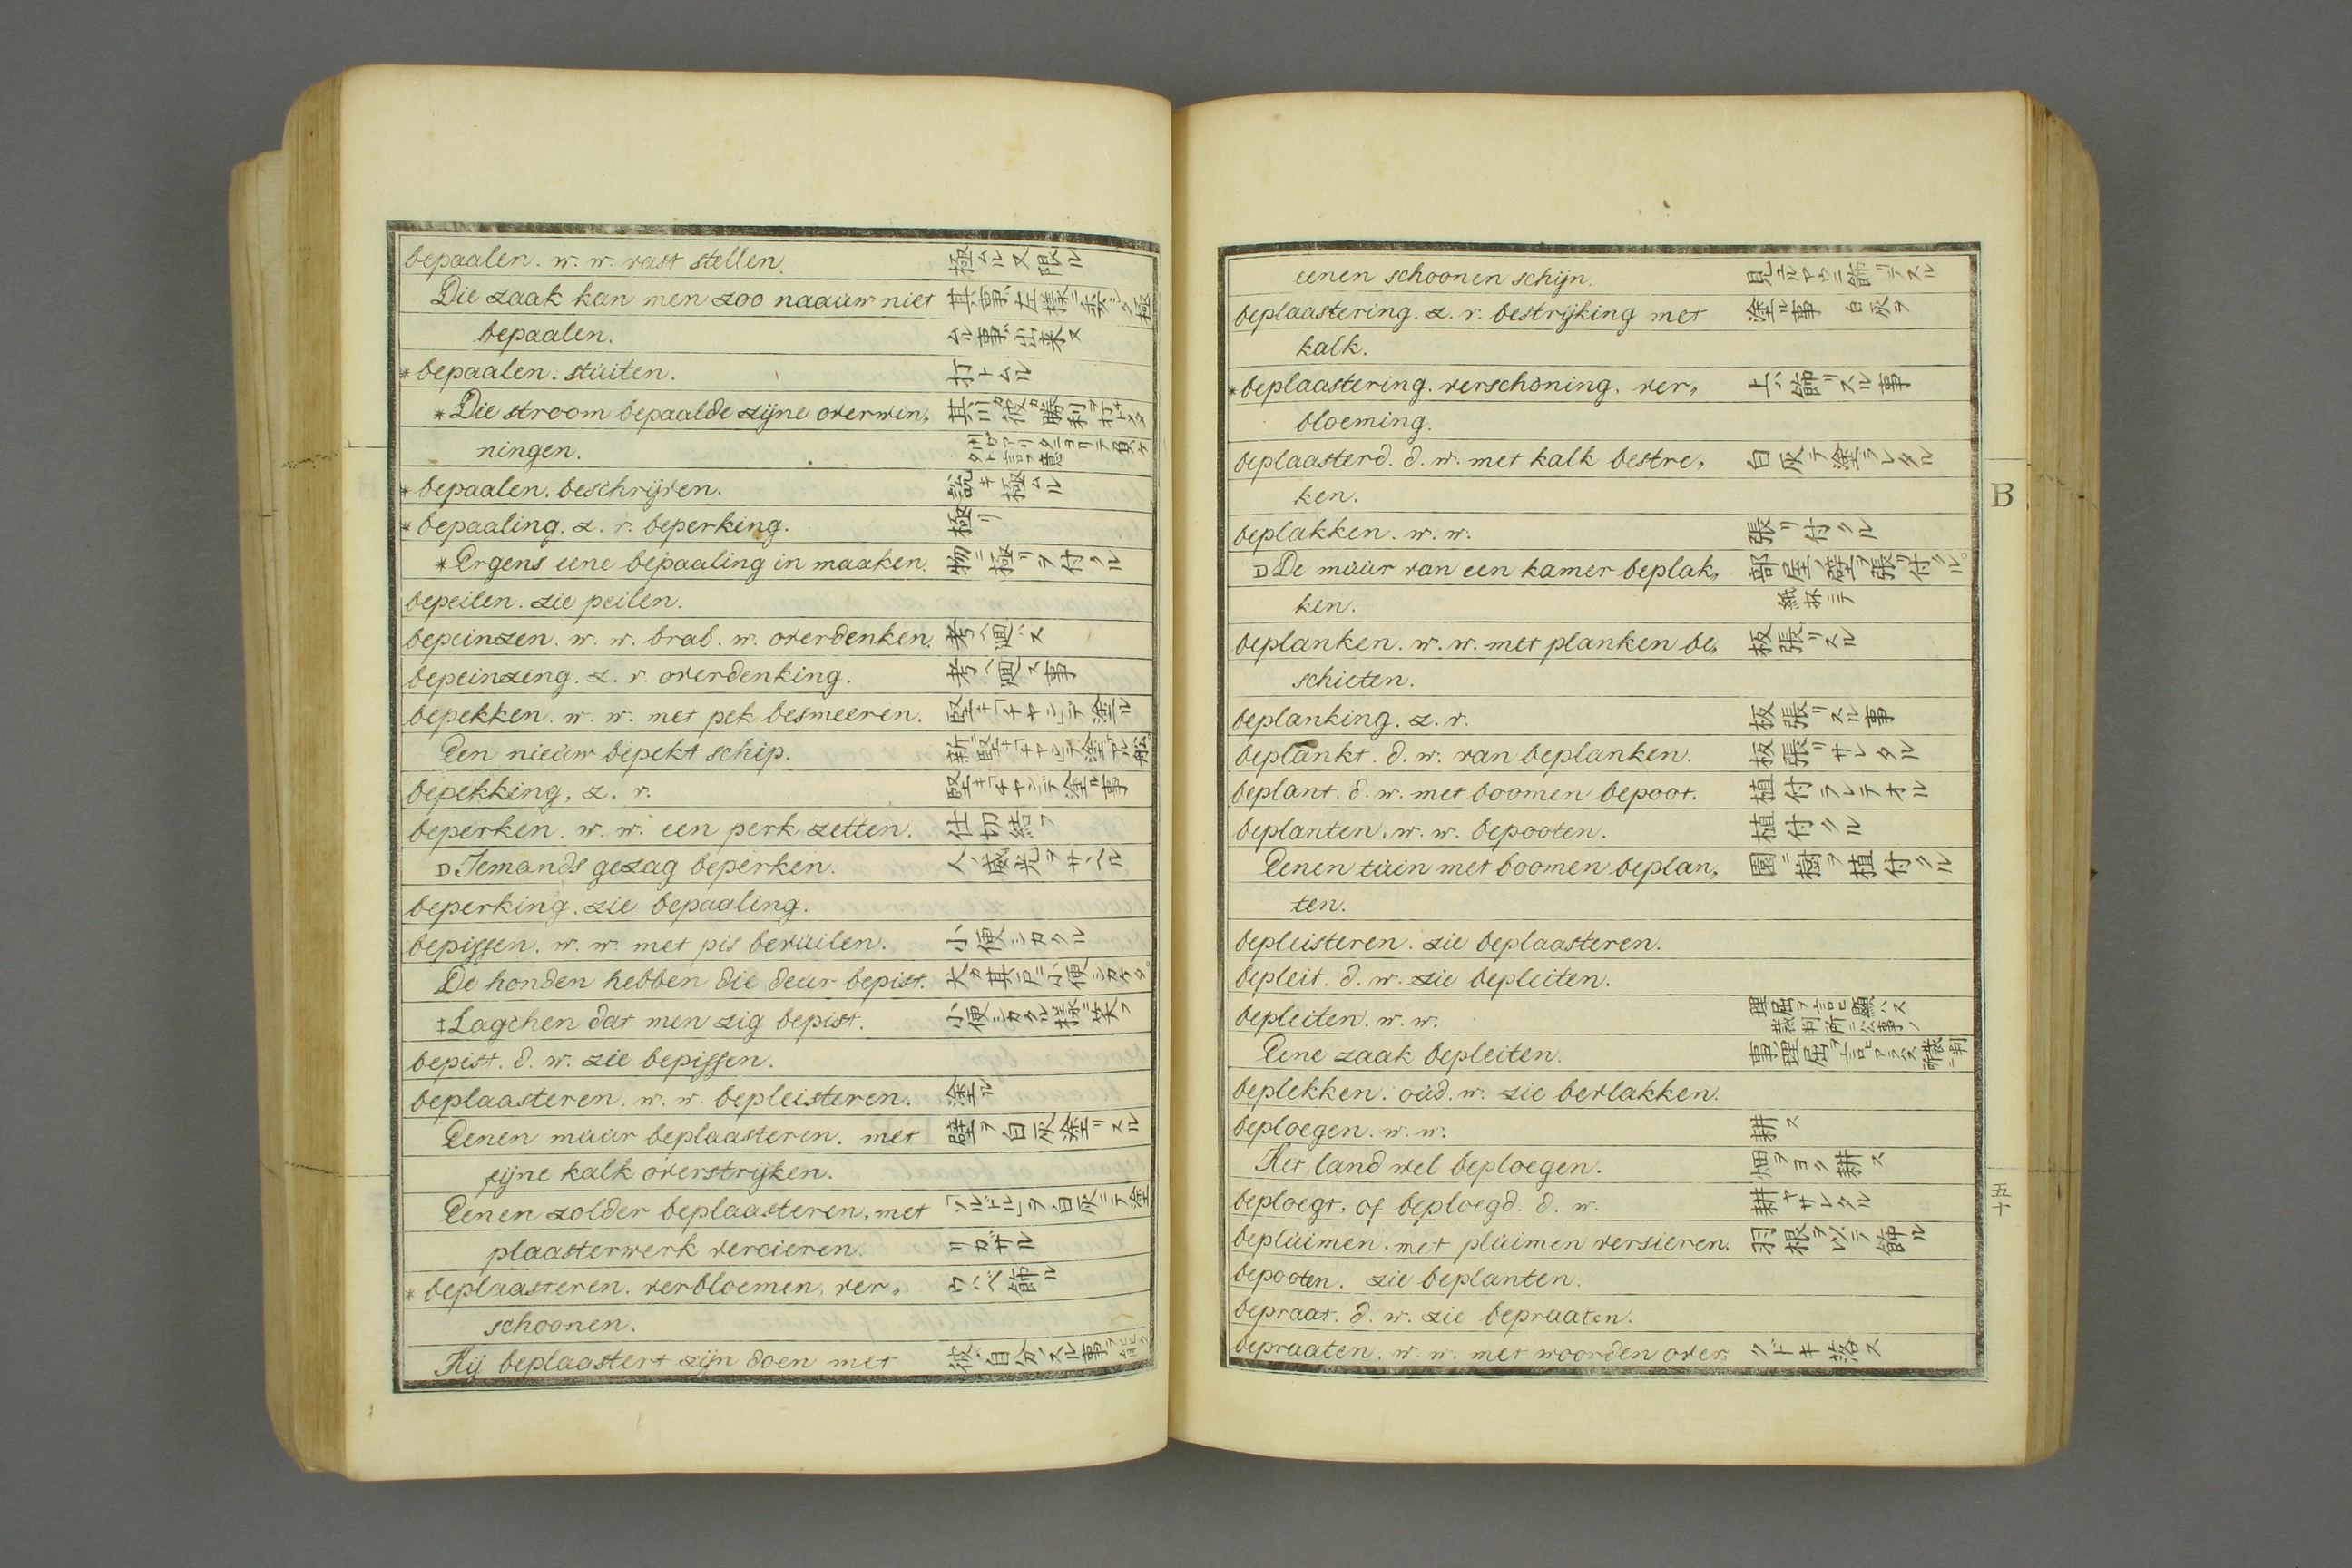 bepaalen. w. w. vast stellen. 極ムル又限ル
Die zaak kan men zoo naauw niet 其事ハ左様ニ委シク極
bepaalen. ムル事ハ出来ヌ
*bepaalen. stuiten. 打トムル
*Die stroom bepaalde zijne overwin„ 其川ガ彼ガ勝利ヲ打トメタ
ningen.
*bepaalen. beschrijven. 説キ極ムル
*bepaaling. z. v. beperking. 極リ
*Ergens eene bepaaling in maaken. 物ニ極リヲ付クル
bepeilen. zie peilen.
bepeinzen. w. w. brab. w. overdenken. 考ヘ廻ス
bepeinzing. z. v. overdenking. 考ヘ廻ス事
bepekken. w. w. met pek besmeeren. 堅キ「チヤン」ニテ塗ル
Een nieuw bepekt schip. 新ニ堅キ「チヤン」ニテ塗タル船
bepekking, z. v. 堅キ「チヤン」ニテ塗ル事
beperken. w. w. een perk zetten. 仕切結フ
D Iemands gezag beperken. 人ノ威光ヲサヽヘル
beperking. zie bepaaling.
bepissen. w. w. met pis bevuilen. 小便シカクル
De honden hebben die deur bepist. 犬ガ其戸ニ小便シカケタ。
‡Lagchen dat men zig bepist. 小便シカクル様ニ笑フ
bepist. d. w. zie bepissen.
beplaasteren. w. w. bepleisteren. 塗ル
Eenen muur beplaasteren. met 壁ヲ白灰塗リスル
fijne kalk overstrijken.
Eenen zolder beplaasteren, met 「ソルドル」ヲ白灰ニテ塗
plaasterwerk vercieren. リカザル
*beplaasteren. verbloemen, ver„ ウハベ飾ル
schoonen.
Hij beplaastert zijn doen met 彼ハ自分ノスル事ヲ
eenen schoonen schijn. 見ユルヤウニ飾リテスル
beplaastering. z. v. bestrijking met 塗ル事 白灰ヲ
kalk.
*beplaastering. verschoning, ver„ 上ハ飾リスル事
bloeming.
beplaasterd. d. w. met kalk bestre„ 白灰ニテ塗ラレタル
ken.
beplakken. w. w. 張リ付クル
D De muur van een kamer beplak„ 部屋ノ壁ヲ張リ付クル。
ken. 紙杯ニテ
beplanken. w. w. met planken be„ 板張リスル
schieten.
beplanking. z. v. 板張リスル事
beplankt. d. w. van beplanken. 板張リサレタル
beplant. d. w. met boomen bepoot. 植付ラレテオル
beplanten. w. w. bepooten. 植付クル
Eenen tuin met boomen beplan„ 園ニ樹ヲ植付クル
ten.
bepleisteren. zie beplaasteren.
bepleit. d. w. zie bepleiten.
bepleiten. w. w. 理屈ヲ言ヒ顯ハス 裁判所ニ公事ノ
Eene zaak bepleiten. 事ノ理屈ヲ言ヒアラハス 裁判所ニテ
beplekken. oud. w. zie bevlakken.
beploegen. w. w. 耕ス
Het land wel beploegen. 畑ヲヨク耕ス
beploegt, of beploegd. d. w. 耕ヤサレタル
bepluimen. met pluimen versieren. 羽根ヲ以テ飾ル
bepooten. zie beplanten.
bepraat. d. w. zie bepraaten.
bepraaten. w. w. met woorden over„ クドキ落ス
B
五十